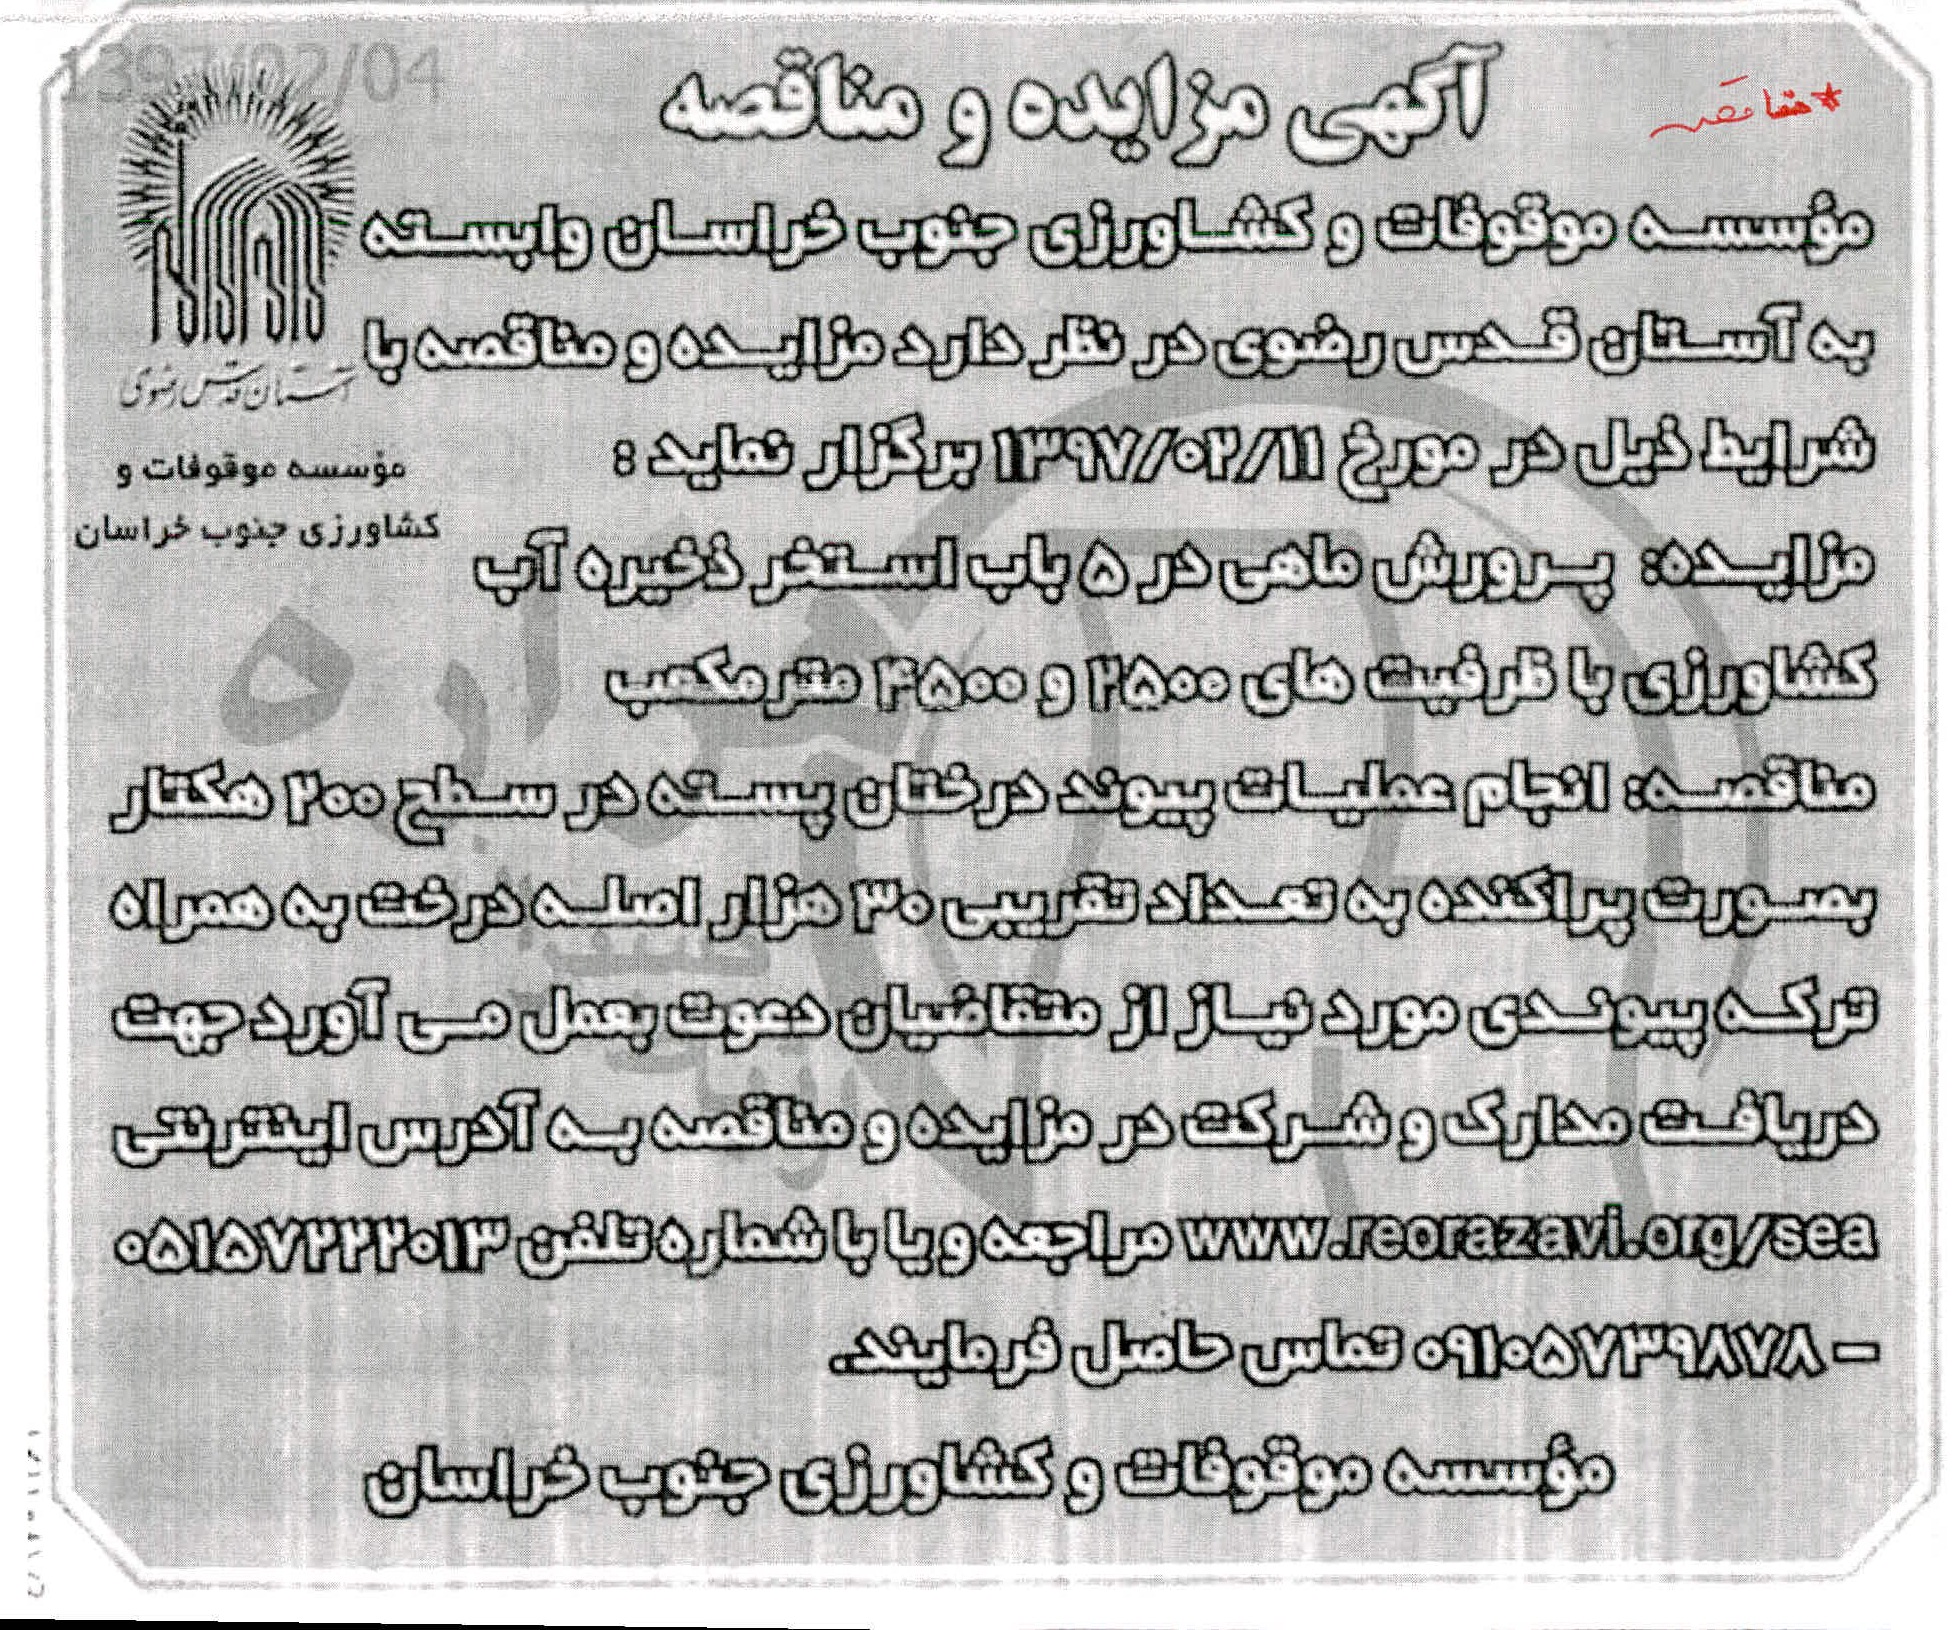 1397/02/04
آگهی مزایده و مناقصه
*مناقصه
آستان قدس رضوی
مؤسسه موقوفات و
کشاورزی جنوب خراسان
مؤسسه موقوفات و کشاورزی جنوب خراسان وابسته
به آستان قدس رضوی در نظر دارد مزایده و مناقصه با
شرایط ذیل در مورخ ۱۳۹۷/۰۲/۱۱ برگزار نماید :
مزایده: پرورش ماهی در ۵ باب استخر ذخیره آب
کشاورزی با ظرفیت های ۲۵۰۰ و ۴۵۰۰ مترمکعب
مناقصه: انجام عملیات پیوند درختان پسته در سطح ۲۰۰ هکتار
بصورت پراکنده به تعداد تقریبی ۳۰ هزار اصله درخت به همراه
ترکه پیوندی مورد نیاز از متقاضیان دعوت بعمل می آورد جهت
دریافت مدارک و شرکت در مزایده و مناقصه به آدرس اینترنتی
www.reorazavi.org/sea مراجعه و یا با شماره تلفن ۰۵۱۵۷۲۲۲۰۱۳
– ۰۹۱۰۵۷۳۹۸۷۸ تماس حاصل فرمایند.
مؤسسه موقوفات و کشاورزی جنوب خراسان